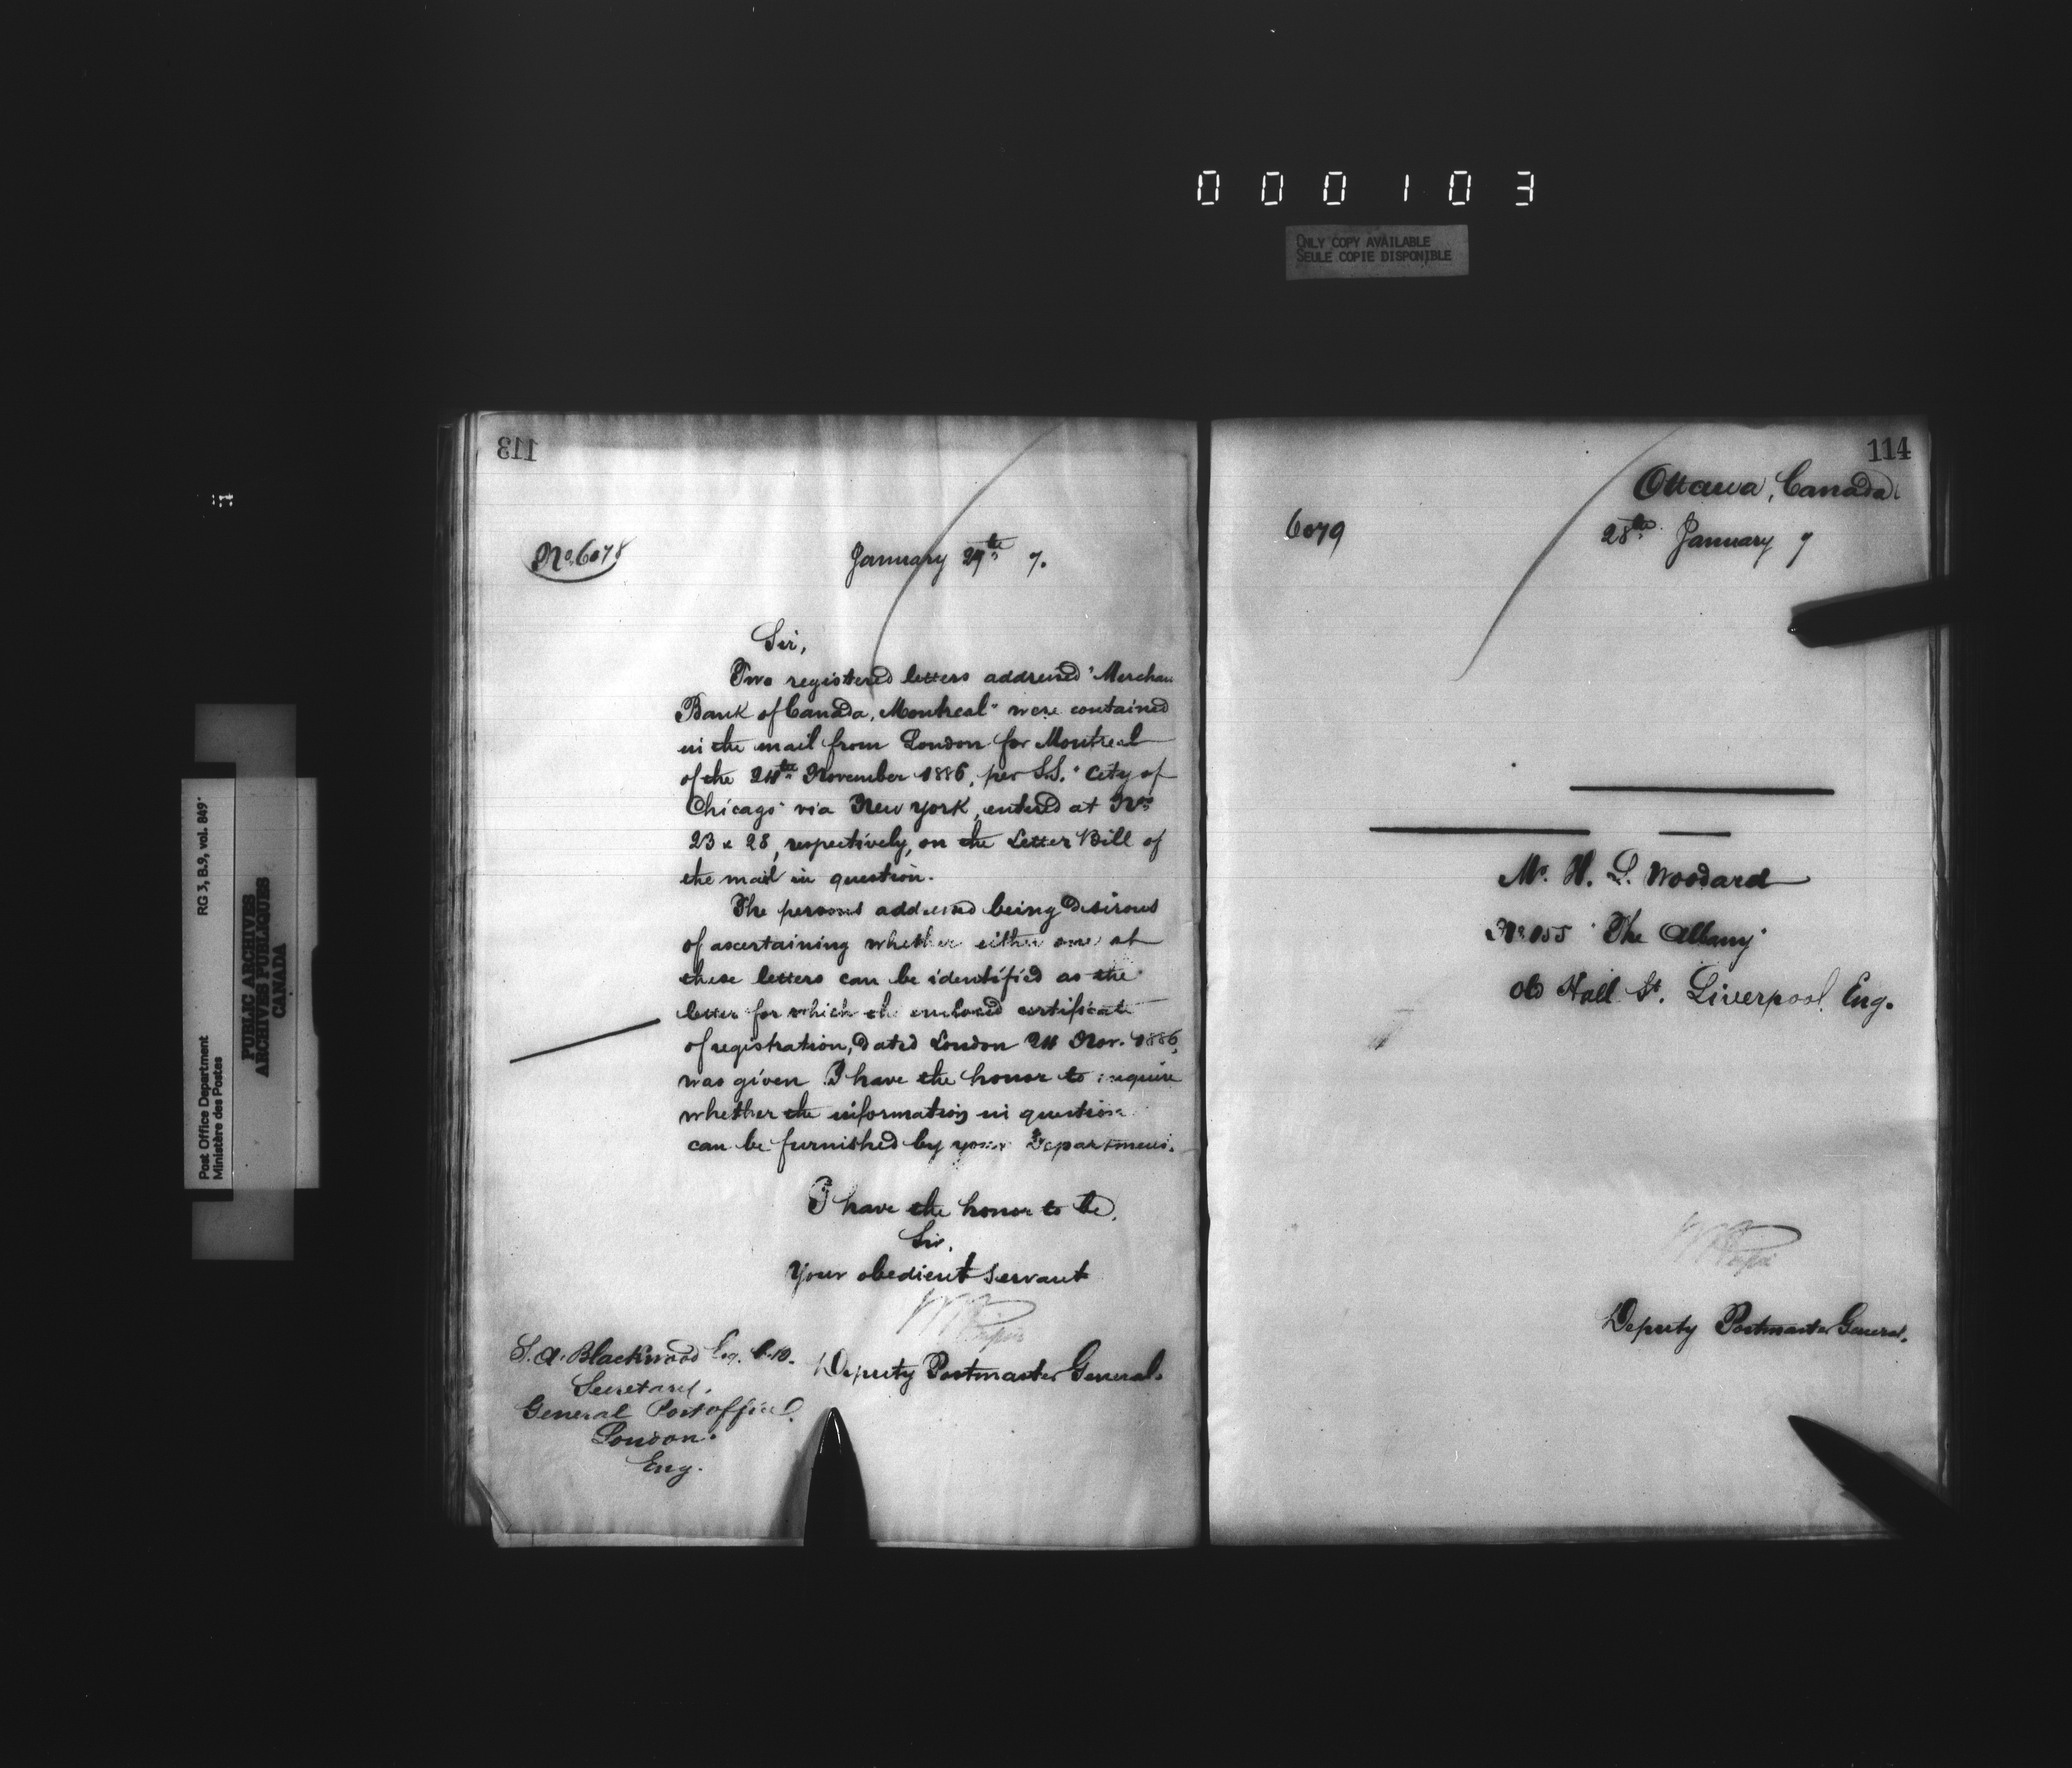 000103
ONLY COPY AVAILABLE
SEULE COPIE DISPONIBLE
RG 3, B.9, vol. 849
Post Office Department
Ministère des Postes
PUBLIC ARCHIVES
ARCHIVES PUBLIQUES
CANADA
113
No. 6078
January 27th 7.
Sir,
Two registered letters addressed "Merchan
Bank of Canada, Montreal" were contained
in the mail from London for Montreal
of the 24th November 1886, per S.S. "City of
Chicago" via New York, entered at Nos
23 & 28, respectively, on the Letter Bill of
the mail in question.
The persons addressed being desirous
of ascertaining whether either one of
these letters can be identified as the
letter for which the enclosed certificate
of registration, dated London 24 Nov. 1886,
was given I have the honor to inquire
whether the information in question
can be furnished by your Department.
I have the honor to be,
Sir,
Your obedient Servant
Deputy Postmaster General.
S. A. Blackwood Esq. C.B.
Secretary.
General Post office
London.
Eng.
114
Ottawa, Canada
6079
28th January 7
Mr. H. L. Woodard
"The Albany"
Old Hall St. Liverpool Eng.
Deputy Postmaster General.